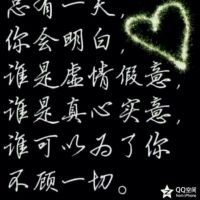 总有一天，
你会明白，
谁是虚情假意，
谁是真心实意，
谁可以为了你
不顾一切。
QQ空间